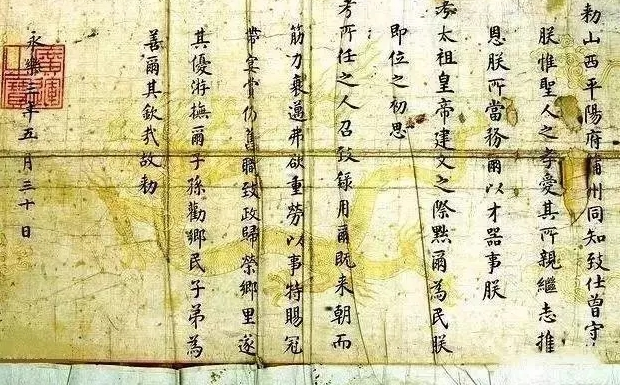 勑山西平陽府蒲州同知致仕曾守
朕惟聖人之孝愛其所親繼志推
恩朕所當務爾以才器事朕
考太祖皇帝建文之際黜爾為民朕
即位之初思
考所任之人召致錄用爾既来朝而
筋力衰邁弗欲重勞以事特賜冠
帶宴賞仍舊職致政歸榮鄉里遂
其優游撫爾子孫勸鄉民子弟為
善爾其欽哉故勑
永樂二年五月三十日